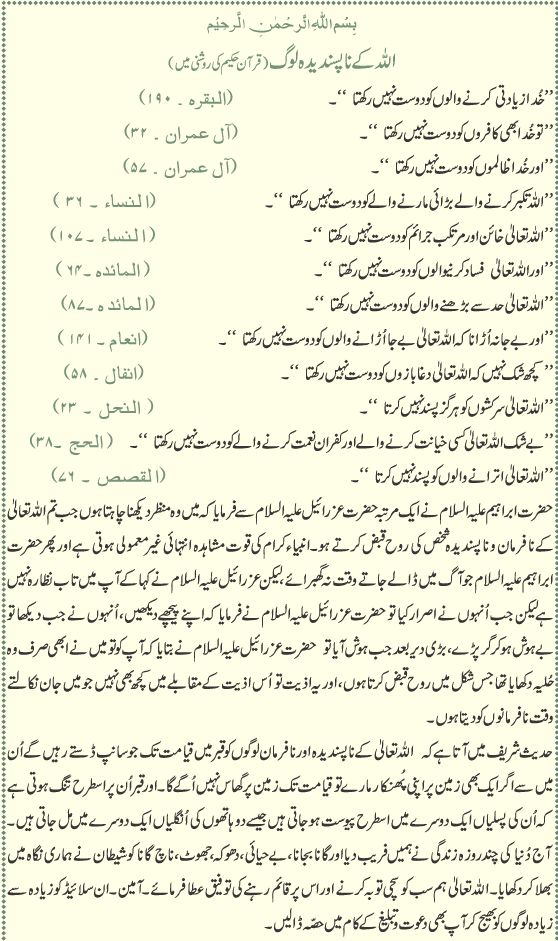 بِسْمِ اللہِ الرَّحْمٰنِ الرَّحِیْمِ
اللہ کے ناپسندیدہ لوگ (قرآن حکیم کی روشنی میں)
’’خُدا زیادتی کرنے والوں کو دوست نہیں رکھتا ‘‘۔ (البقرہ ۔ ۱۹۰)
’’تو خُدا بھی کافروں کو دوست نہیں رکھتا ‘‘۔ (آل عمران ۔ ۳۲)
’’اور خُدا ظالموں کو دوست نہیں رکھتا ‘‘۔ (آل عمران ۔ ۵۷)
’’اللہ تکبر کرنے والے بڑائی مارنے والے کو دوست نہیں رکھتا ‘‘۔ (النساء ۔ ۳۶)
’’اللہ تعالیٰ خائن اور مرتکب جرائم کو دوست نہیں رکھتا ‘‘۔ (النساء ۔ ۱۰۷)
’’اور اللہ تعالیٰ فساد کرنیوالوں کو دوست نہیں رکھتا ‘‘۔ (المائدہ ۔ ۶۴)
’’اللہ تعالیٰ حد سے بڑھنے والوں کو دوست نہیں رکھتا ‘‘۔ (المائدہ ۔ ۸۷)
’’اور بے جا نہ اُڑانا کہ اللہ تعالیٰ بے جا اُڑانے والوں کو دوست نہیں رکھتا ‘‘۔ (انعام ۔ ۱۴۱)
’’کچھ شک نہیں کہ اللہ تعالیٰ دغا بازوں کو دوست نہیں رکھتا ‘‘۔ (انفال ۔ ۵۸)
’’اللہ تعالیٰ سرکشوں کو ہرگز پسند نہیں کرتا ‘‘۔ (النحل ۔ ۲۳)
’’بے شک اللہ تعالیٰ کسی خیانت کرنے والے اور کفران نعمت کرنے والے کو دوست نہیں رکھتا ‘‘۔ (الحج ۔ ۳۸)
’’اللہ تعالیٰ اترانے والوں کو پسند نہیں کرتا ‘‘۔ (القصص ۔ ۷۶)
حضرت ابراہیم علیہ السلام نے ایک مرتبہ حضرت عزرائیل علیہ السلام سے فرمایا کہ میں وہ منظر دیکھنا چاہتا ہوں جب تم اللہ تعالیٰ
کے نافرمان و ناپسندیدہ شخص کی روح قبض کرتے ہو۔ انبیاء کرام کی قوت مشاہدہ انتہائی غیر معمولی ہوتی ہے اور پھر حضرت
ابراہیم علیہ السلام جو آگ میں ڈالے جاتے وقت نہ گھبرائے لیکن عزرائیل علیہ السلام نے کہا کے آپ میں تاب نظارہ نہیں
ہے لیکن جب اُنہوں نے اصرار کیا تو حضرت عزرائیل علیہ السلام نے فرمایا کہ اپنے پیچھے دیکھیں، اُنہوں نے جب دیکھا تو
بے ہوش ہو کر گر پڑے، بڑی دیر بعد جب ہوش آیا تو حضرت عزرائیل علیہ السلام نے بتایا کہ آپ کو تو میں نے ابھی صرف وہ
حُلیہ دکھایا تھا جس شکل میں روح قبض کرتا ہوں، اور یہ اذیت تو اُس اذیت کے مقابلے میں کچھ بھی نہیں جو میں جان نکالتے
وقت نافرمانوں کو دیتا ہوں۔
حدیث شریف میں آتا ہے کہ اللہ تعالیٰ کے ناپسندیدہ اور نافرمان لوگوں کو قبر میں قیامت تک جو سانپ ڈستے رہیں گے اُن
میں سے اگر ایک بھی زمین پر اپنی پُھنکار مارے تو قیامت تک زمین پر گھاس نہیں اُگے گا۔ اور قبر اُن پر اسطرح تنگ ہوتی ہے
کہ اُن کی پسلیاں ایک دوسرے میں اسطرح پیوست ہو جاتی ہیں جیسے دو ہاتھوں کی اُنگلیاں ایک دوسرے میں مل جاتی ہیں۔
آج دُنیا کی چند روزہ زندگی نے ہمیں فریب دیا اور گانا بجانا، بے حیائی، دھوکہ، جھوٹ، ناچ گانا کو شیطان نے ہماری نگاہ میں
بھلا کر دکھایا۔ اللہ تعالیٰ ہم سب کو سچی توبہ کرنے اور اس پر قائم رہنے کی توفیق عطا فرمائے۔ آمین۔ ان سلائیڈ کو زیادہ سے
زیادہ لوگوں کو بھیج کر آپ بھی دعوت و تبلیغ کے کام میں حصّہ ڈالیں۔